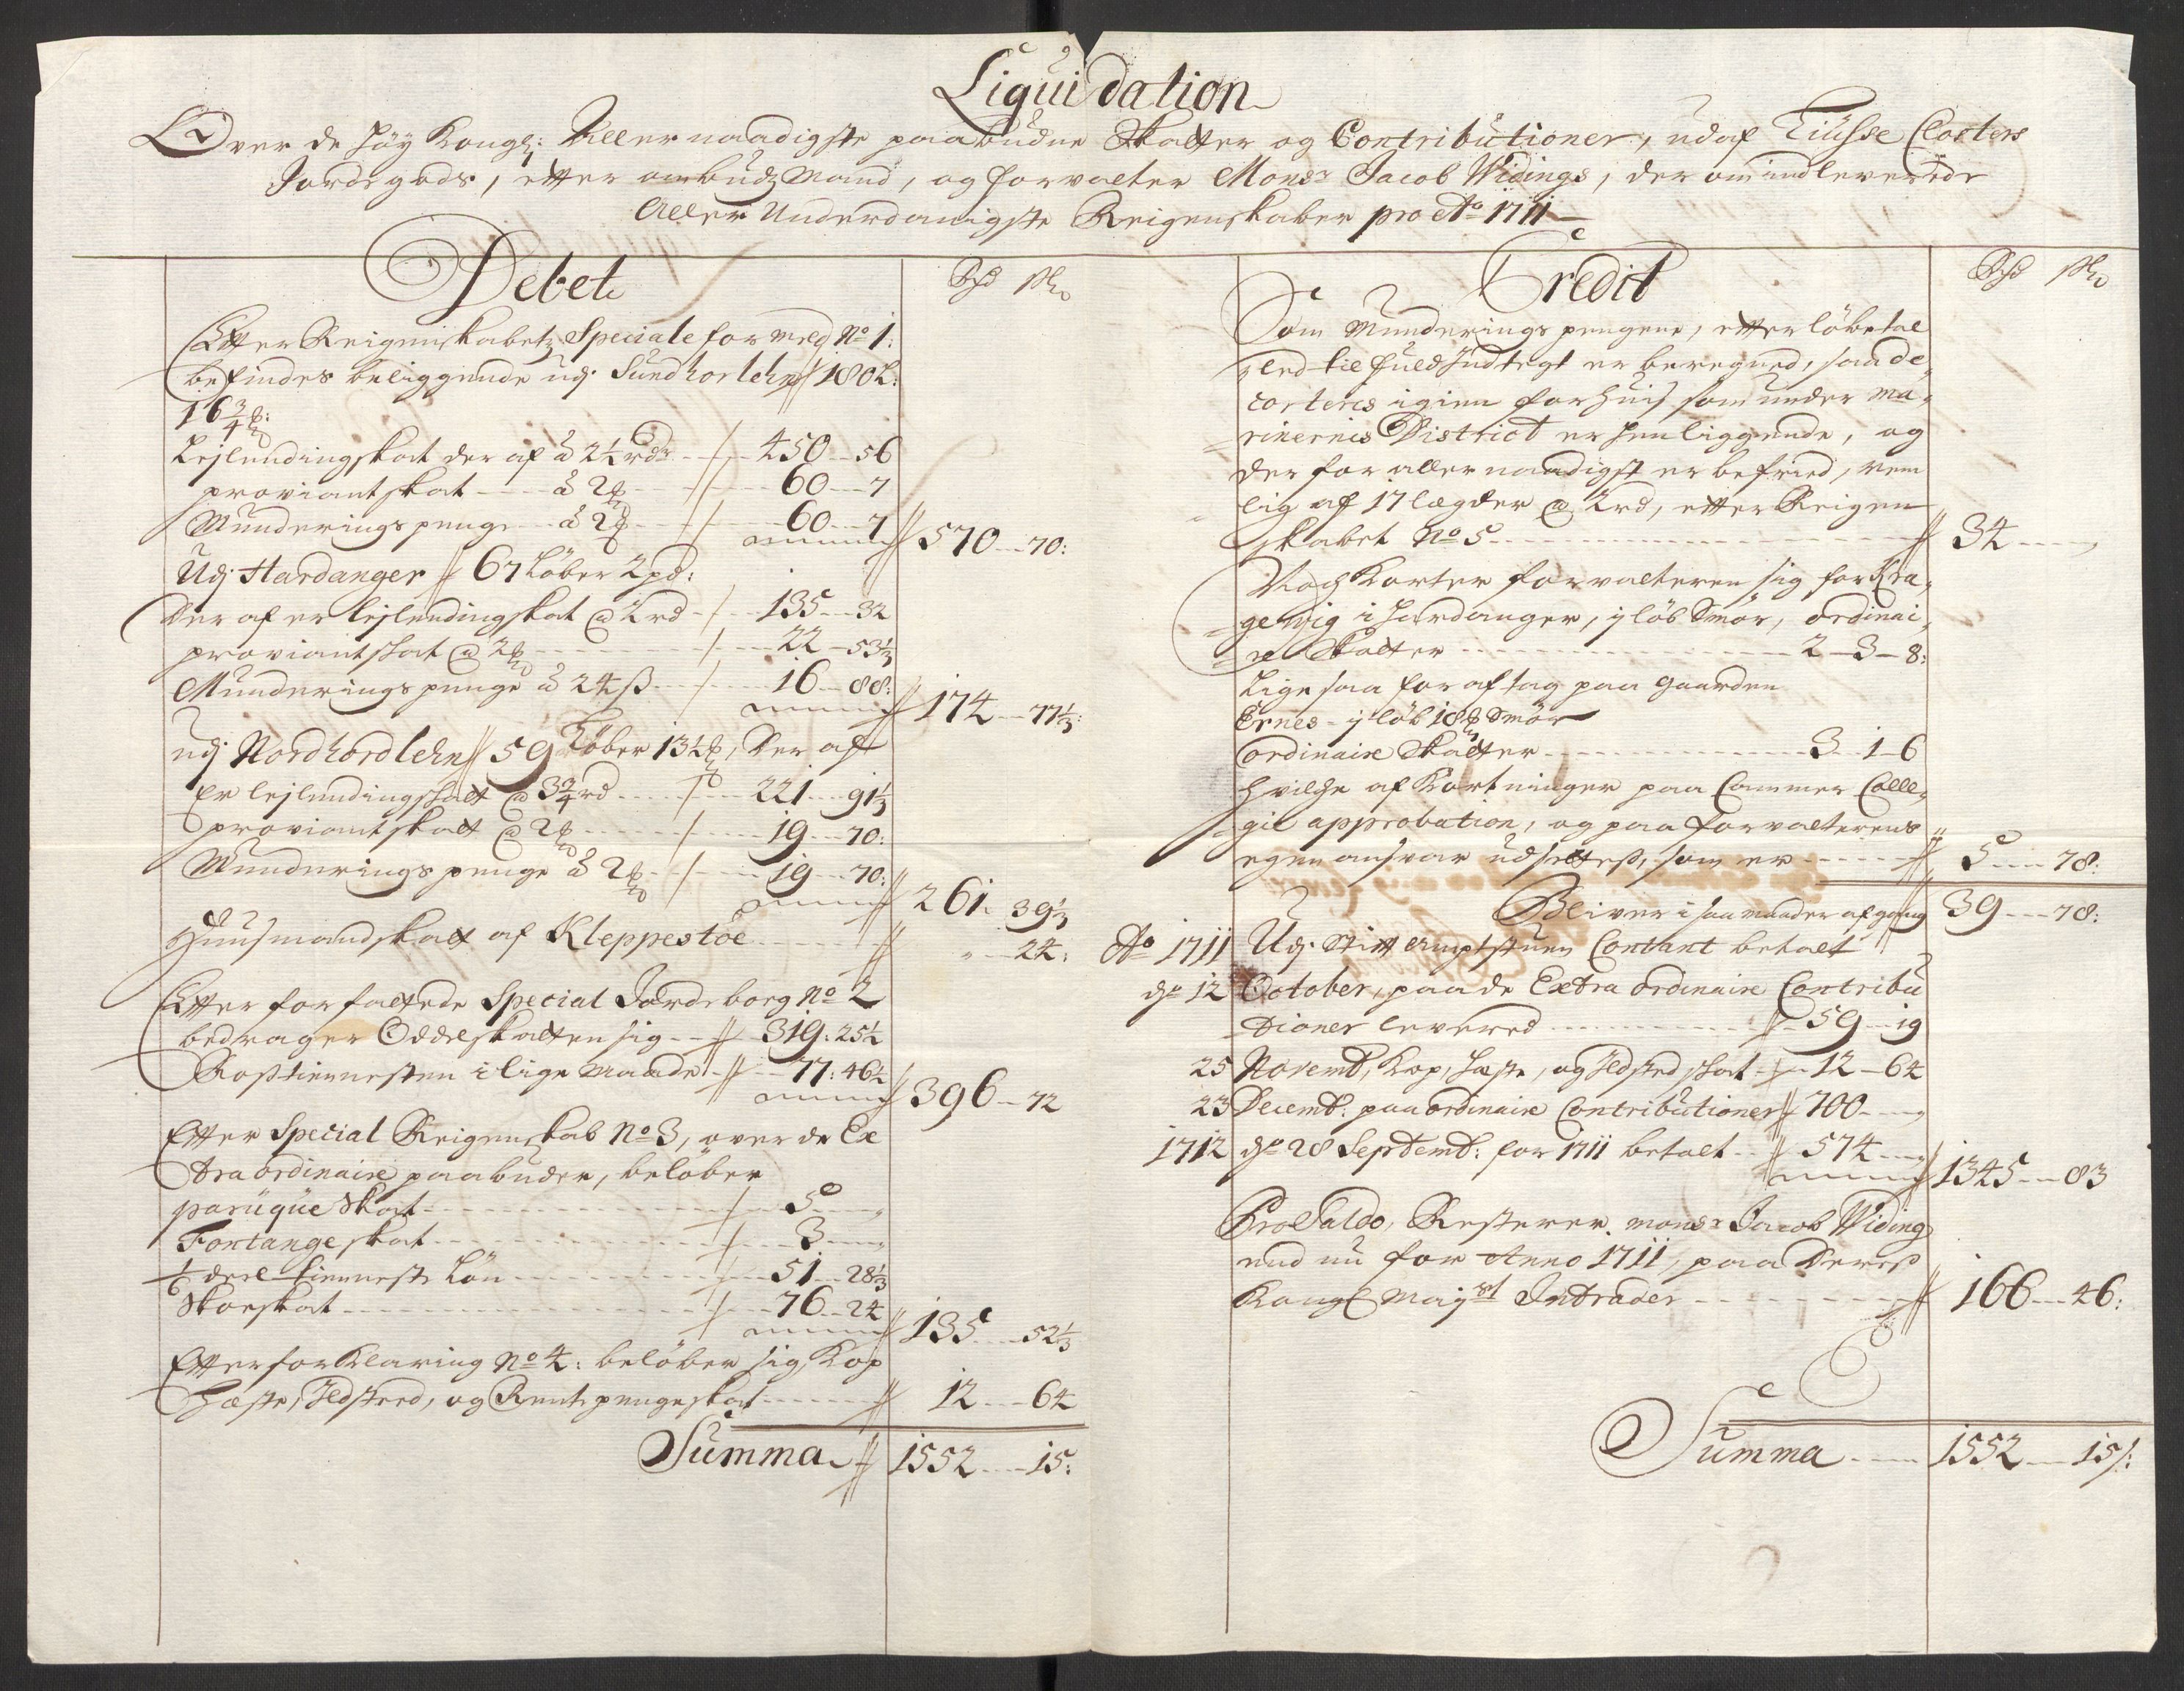 Liquidation
Over de Høy Kongl: Allernaadigste paabudne Skatter og Contributioner, udaf Liusse Closters
Jordegods, etter ombudsmand, og forvalter Monsr Jacob Widings, der om indleverede
Aller Underdanigste Reigenskaber pro Ao 1711
Debet
Rdr sk
Etter Reigenskabets Speciale formeld No 1:
befindes beliggende udj Sundhorlehn 180 L:
16 3/4 :
Lejlendingskat der af â 2½ rdr 450 56
proviantskat â 2 60 7
Munderings penge â 2 60 7
570 70:
Udj Hardanger 67 Løber 2 pd:
Der af er lejlendingskat @ 2 rd 135 32
proviantskat @ 2 22 53⅓
Munderingspenge â 24 ß 16 88:
174 77⅓:
udj Nordhordlehn 59 Løber 13½, Der af
er lejlendingskatt @ 3¾ rd 221 91⅓
proviantskatt @ 2 19 70:
Munderings penge â 2 19 70:
261 39⅓
Huusmandskatt af Kleppestöe 24:
Etter forfattede Special Jordebog No 2
bedrager Oddelskatten sig 319: 25½
Rostienesten i lige Maade 77: 46½
396 72
Etter Special Reigenskab No 3, over de Ex
traordinaire paabuder, beløber
paruque Skat 5
Fontange skat 3
1/6 deel tienneste Løn 51 28⅓
Skoeskat 76 24
135 52⅓
Etter forklaring No 4: beløber sig Kop
Hæste, Ildsteed, og Rentepengeskat 12 64
Summa 1552 15:
Credit
Rdr sk
Som Munderings pengene, etter løbetal
ved til fuld Indtegt er beregned, saa de
corteres igien for huis som under Ma-
rinernis District er henliggende, og
der for allernaadigst er befried, nem
lig af 17 lægder @ 2 rd, etter Reigen
skabet No 5 34
Noch Korter forvalteren sig for Kra-
gewig i Hardanger, 1 løb Smør, ordinai-
re Skatter 2 3 8:
Lige saa for aftag paa gaarden
Ernes 1 løb 18 Smør
ordinaire Skatter 3 1 6
hvilche af Kortninger paa Cammer Colle-
gii approbation, og paa forvalterens
egen ansvar udsættes, som er 5 78:
Bliver i saa maader afgang 39 78:
Ao 1711 Udj Stiftamptstuen Contant betalt
dn 12 October, paa de Extra ordinaire Contribu
tioner levered 59 19
25 Novemb, Kop, Hæste, og Ildsted skat 12 64
23 Decemb: paa ordinaire Contributioner 700
1712 dn 28 Septemb: for 1711 betalt 574
1345 83
Pro Saldo, Resterer monsr Jacob Widing
end nu for Anno 1711, paa Deres
Kongl Mayst Intrader 166 46:
Summa 1552 15/: